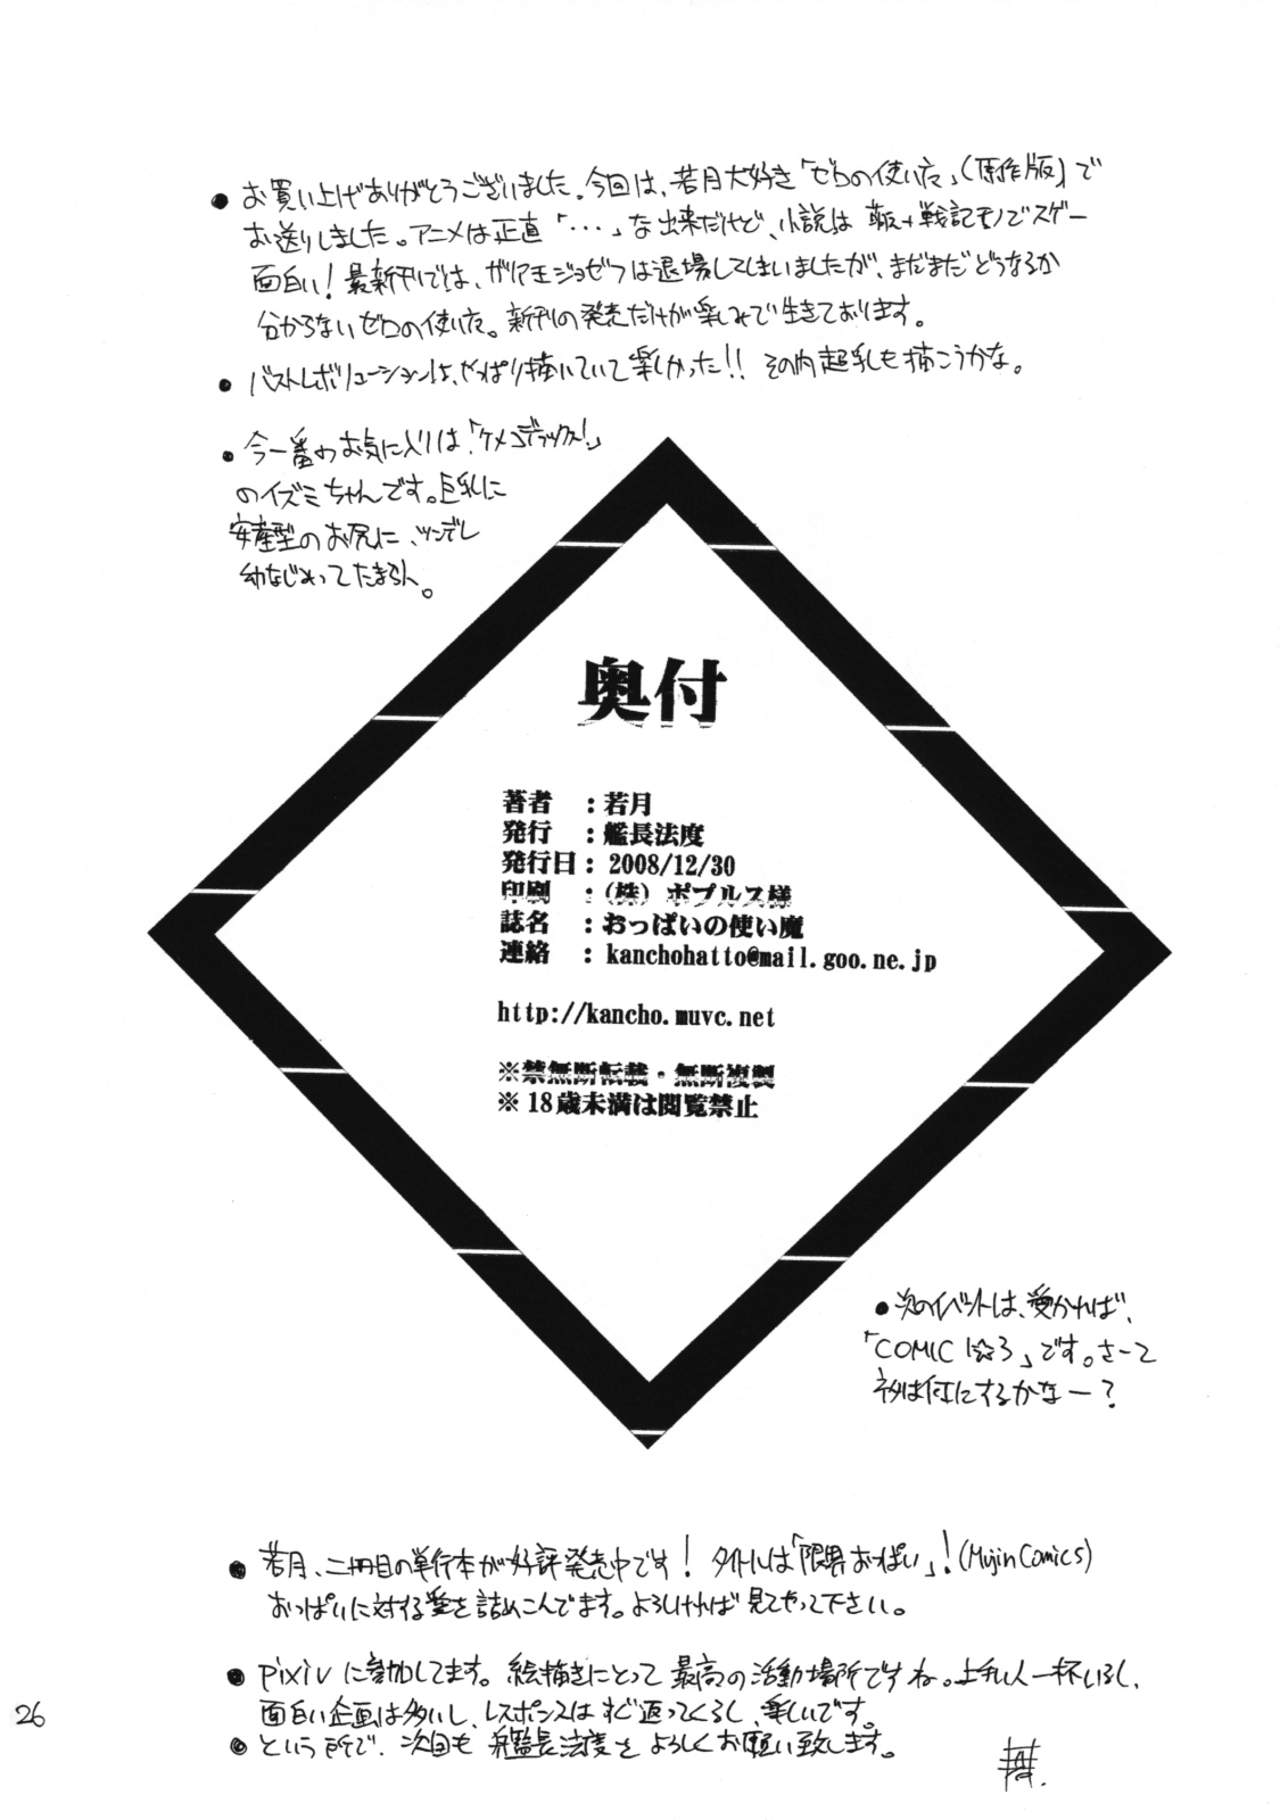 ●お買い上げありがとうございました。今回は、若月大好き「ゼロの使い魔」(原作版)で
お送りしました。アニメは正直「・・・」な出来だけど、小説は 戦記モノでスゲー
面白い！最新刊では、ガリア王ジョゼフは退場してしまいましたが、まだまだどうなるか
分からないゼロの使い魔。新刊の発売だけが楽しみで生きております。
●バストレボリューションは、やっぱり描いていて楽しかった!! その内超乳も描こうかな。
●今一番のお気に入りは「ケメコデラックス!」
のイズミちゃんです。巨乳に
安産型のお尻に、ツンデレ
幼なじみってたまらん。
奥付
著者 ：若月
発行 ：艦長法度
発行日：2008/12/30
印刷 ：(株) ポプルス様
誌名 ：おっぱいの使い魔
連絡 ：kanchohatto@mail.goo.ne.jp
http://kancho.muvc.net
※禁無断転載・無断複製
※18歳未満は閲覧禁止
●次のイベントは、受かれば、
「COMIC1☆3」です。さーて
ネタは何にするかなー？
●若月、二冊目の単行本が好評発売中です！ タイトルは「限界おっぱい」！(MujinComics)
おっぱいに対する愛を詰めこんでます。よろしければ見てやって下さい。
●pixivに参加してます。絵描きにとって最高の活動場所ですね。上手い人一杯いるし、
面白い企画は多いし、レスポンスはすぐ返ってくるし、楽しいです。
●という所で、次回も艦長法度をよろしくお願い致します。
26